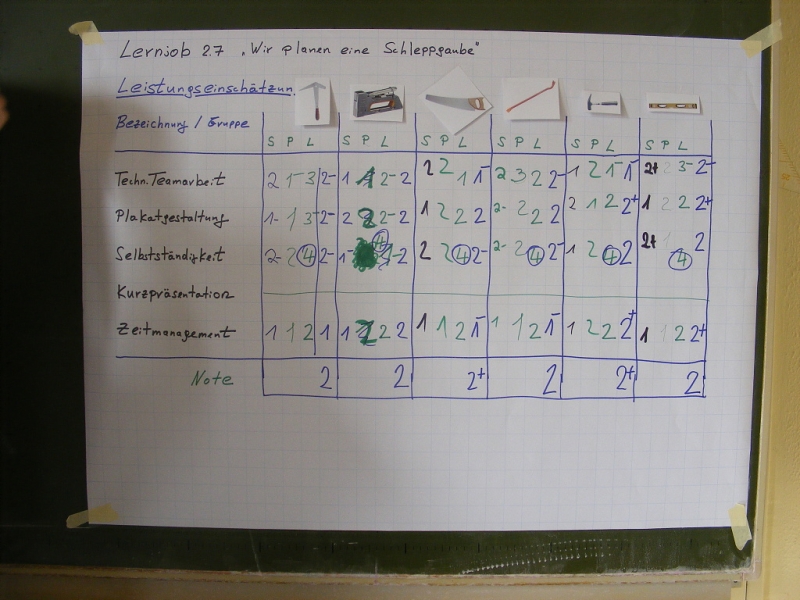 Lernjob 2.7 „Wir planen eine Schleppgaube"
Leistungseinschätzun
Bezeichnung / Gruppe
S P L S P L S P L S P L S P L S P L
Techn. Teamarbeit 2 1- 3 2- 1 1 2- 2 2 2 1 1- 2 3 2 2- 1 2 1- 1- 2+ 2 3- 2-
Plakatgestaltung 1- 1 3- 2- 2 2 2- 2 1 2 2 2 2- 2 2 2 2 1 2 2+ 1 2 2 2+
Selbstständigkeit 2- 2 4 2- 1- 4 2 2 2 4 2- 2- 2 4 2- 1 2 4 2 2+ 4 2
Kurzpräsentation
Zeitmanagement 1 1 2 1 1 2 2 2 1 1 2 1- 1 1 2 1- 1 2 2 2+ 1 1 2 2+
Note 2 2 2+ 2 2+ 2